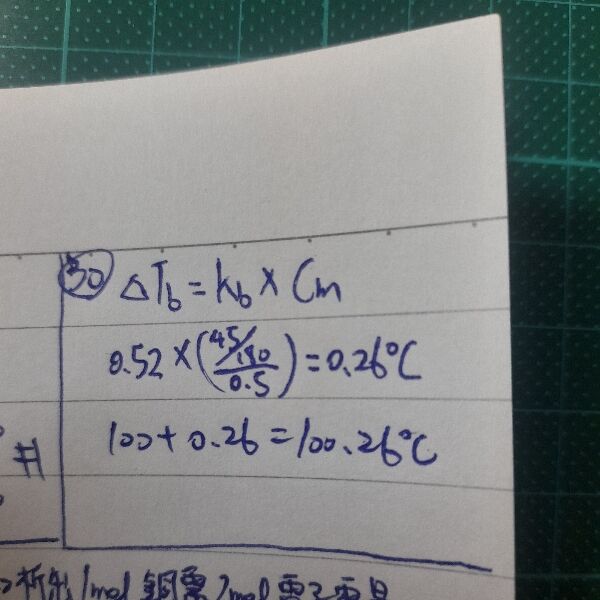 30 ΔTb = Kb × Cm
0.52 × ((45/180)/0.5) = 0.26°C
100 + 0.26 = 100.26°C
#
析出1mol銅需2mol電子